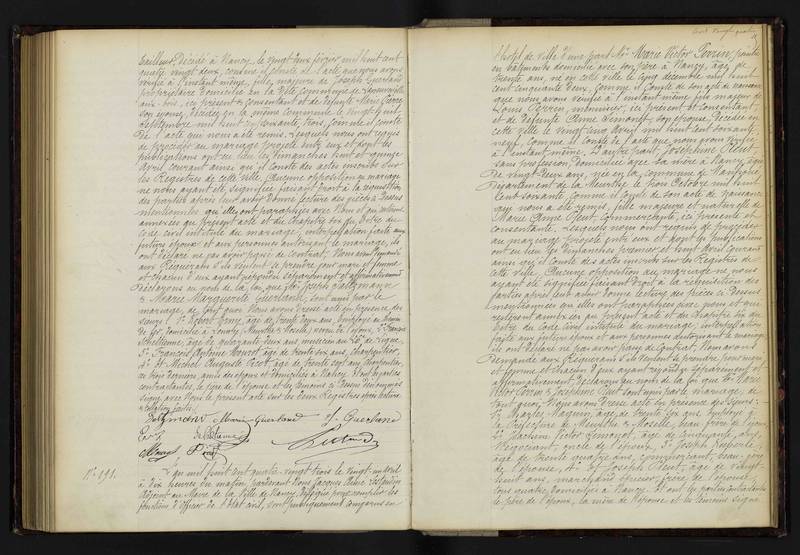 tailleur, Décédé à Nancy, le vingt deux février mil huit cent
quatre vingt deux, comme il conste de l'acte que nous avons
vérifié à l'instant même, fille majeure de Joseph Guerland
propriétaire domicilié en la Ville commune de
aux-bois, ici présent & consentant et de défunte Marie
son épouse, décédée en la même commune le vingt
Septembre mil huit cent soixante trois, comme il conste
de l'acte qui nous a été remis. Lesquels nous ont requis
de procéder au mariage projeté entre eux et dont les
publications ont eu lieu les dimanches huit et quinze
avril courant ainsi qu'il conste des actes inscrits sur
les Registres de cette ville. Aucune opposition au mariage
ne nous ayant été signifiée faisant droit à la réquisition
des parties après leur avoir donné lecture des pièces ci dessus
mentionnées qu'elles ont paraphées avec Nous et qui resteront
annexées au présent acte et du chapitre six du titre du
Code civil intitulé du mariage, interpellation faite aux
futurs époux et aux personnes autorisant le mariage, ils
ont déclaré ne pas avoir passé de contrat. Nous avons demandé
aux Requérans s'ils veulent se prendre pour mari et femme
et chacun d'eux ayant répondu séparément et affirmativement
Déclarons au nom de la loi, que Joseph Saltzmann
& Marie Marguerite Guerland, sont unis par le
mariage, de quoi Nous avons dressé acte en présence des
sieurs 1° age de trente deux ans, employé au chemin
de fer, domicilié à (Meurthe & Moselle) neveu de l'époux, 2° François
âgé de quarante deux ans musicien au 26e de ligne
3° François Antoine âgé de trente six ans, charpentier,
4° et Michel Auguste Picot âgé de trente sept ans Charpentier,
ces trois derniers, amis des époux et domiciliés à Nancy. Et ont les parties
contractantes, le père de l'épouse et les témoins ci dessus dénommés
signé avec Nous le présent acte sur les deux Registres après lecture
Saltzmann Marie Guerland J. Guerland
Picot
N° 191.
L'an mil huit cent quatre-vingt trois le vingt-un avril
à dix heures du matin, pardevant Nous Jacques
Adjoint au Maire de la Ville de Nancy délégué pour remplir les
fonctions d'officier de l'état civil, sont publiquement comparus en
l'hôtel de ville d'une part Mr Marie Victor Perrin, peintre
en bâtiments demeurant avec son père à Nancy, âgé de
trente ans, né en cette ville le cinq décembre mil huit
cent cinquante deux, comme il conste de son acte de naissance
que nous avons vérifié à l'instant même, fils majeur de
Louis Perrin, menuisier, ici présent et consentant
et de défunte Anne Simonet, son épouse, Décédée en
cette ville le vingt cinq avril mil huit cent soixante
neuf, comme il conste de l'acte que nous avons vérifié
à l'instant même. D'autre part, Josephine
sans profession, domiciliée avec sa mère à Nancy, âgée
de vingt deux ans, née en la commune de
Département de la Meurthe le trois Octobre mil huit
cent soixante, comme il conste de son acte de naissance
qui nous a été remis, fille majeure et naturelle de
Marie Anne Commerçante, ici présente et
consentante. Lesquels nous ont requis de procéder
au mariage projeté entre eux et dont les publications
ont eu lieu les dimanches premier et huit avril courant
ainsi qu'il conste des actes inscrits sur les Registres de
cette ville. Aucune opposition au mariage ne nous
ayant été signifiée faisant droit à la réquisition des
parties après leur avoir donné lecture des pièces ci dessus
mentionnées qu'elles ont paraphées avec nous et qui
resteront annexées au présent acte et du chapitre six du
titre du Code civil intitulé du mariage, interpellation
faite aux futurs époux et aux personnes autorisant le mariage
ils ont déclaré ne pas avoir passé de Contrat. Nous avons
demandé aux Requérans s'ils veulent se prendre pour mari
et femme et chacun d'eux ayant répondu séparément et
affirmativement Déclarons au nom de la loi que Mr Marie
Victor Perrin & Josephine sont unis par le mariage, de
tout quoi, Nous avons dressé acte en présence des Sieurs:
1° Charles Maquin, âgé de trente six ans, employé à
la préfecture de Meurthe & Moselle, beau frère de l'époux
2° Victor âgé de cinquante
Négociant, oncle de l'époux, 3° Joseph
âgé de trente quatre ans, commerçant, beau-père
de l'épouse, 4° et Joseph âgé de vingt
huit ans, marchand épicier, frère de l'épouse,
tous quatre domiciliés à Nancy. Et ont les parties contractantes
le père de l'époux, la mère de l'épouse et les témoins signé